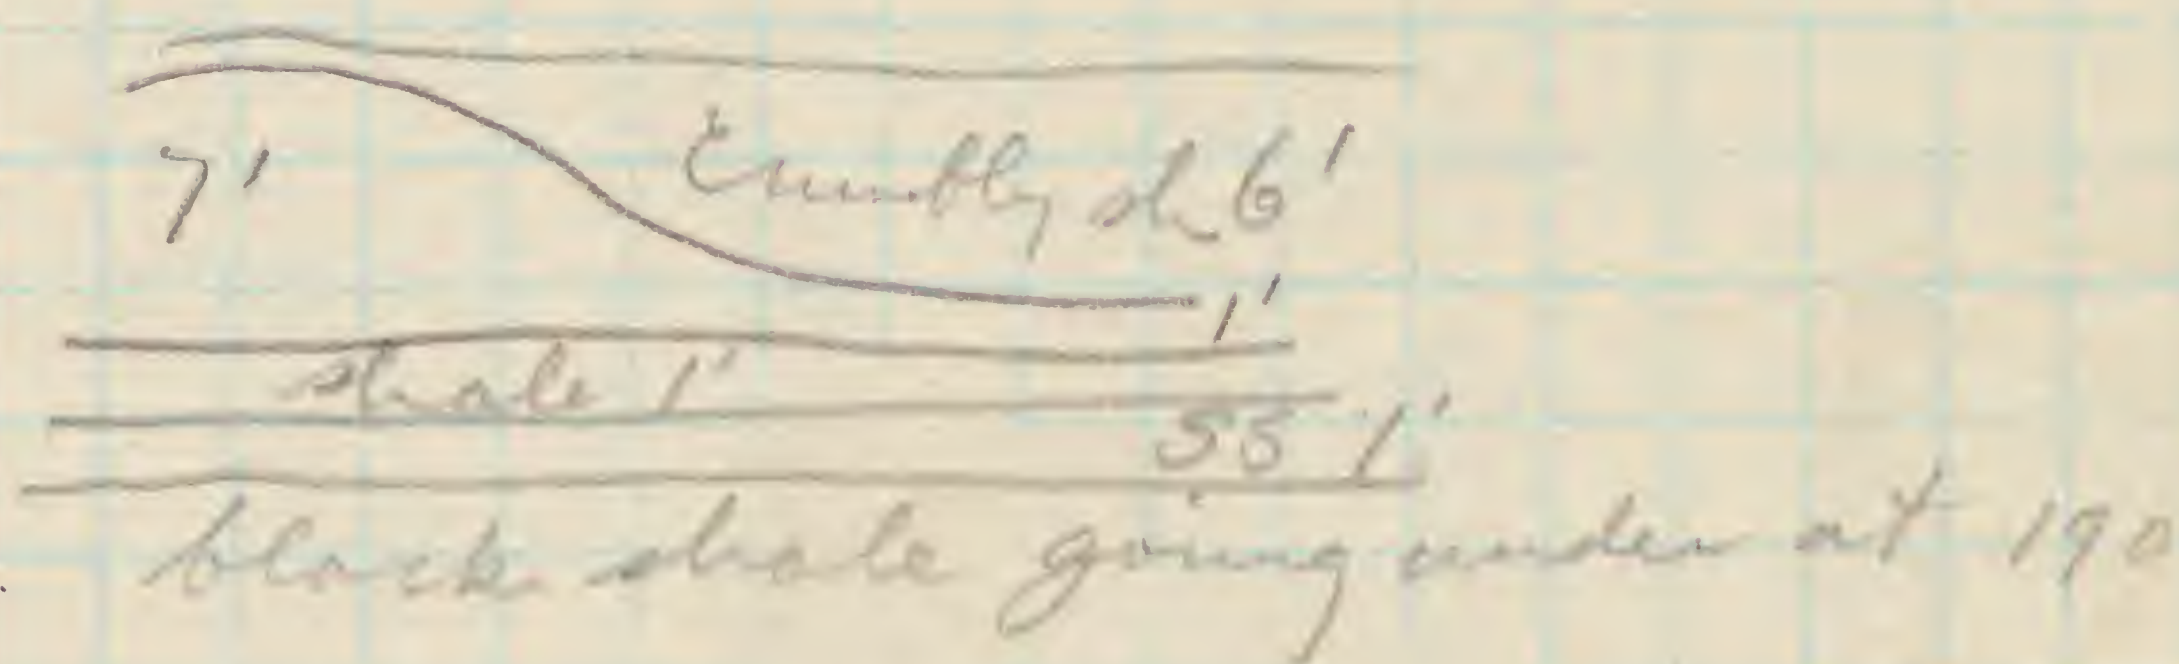 7' Crumbly sh 6'
1'
shale 1'
SS 1'
black shale going under at 190